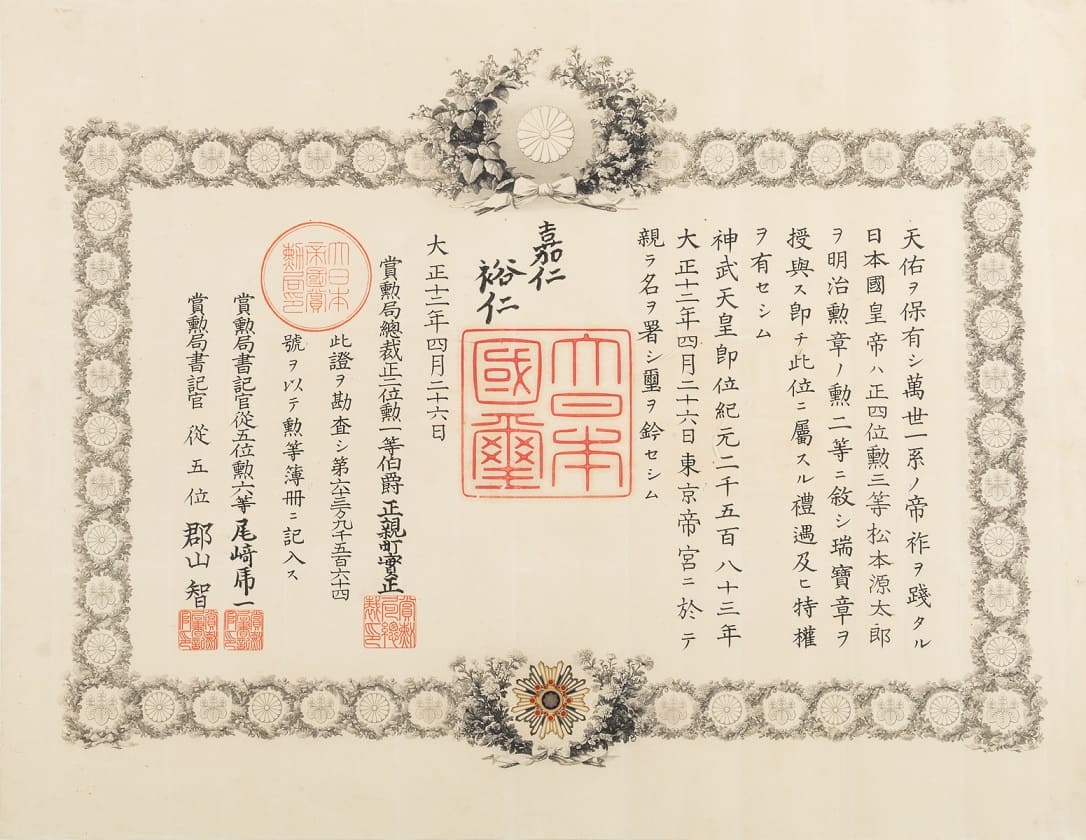 天佑ヲ保有シ萬世一系ノ帝祚ヲ踐タル
日本國皇帝ハ正四位勲三等松本源太郎
ヲ明治勲章ノ勲二等ニ敘シ瑞寶章ヲ
授與ス即チ此位ニ屬スル禮遇及ヒ特權
ヲ有セシム
神武天皇即位紀元二千五百八十三年
大正十二年四月二十六日東京帝宮ニ於テ
親ラ名ヲ署シ璽ヲ鈐セシム
嘉仁
裕仁
大日本
國璽
大正十二年四月二十六日
賞勲局總裁正三位勲一等伯爵正親町實正
賞勲局總裁之印
此證ヲ勘査シ第六十三万九千五百六十四
號ヲ以テ勲等簿冊ニ記入ス
大日本
帝國賞
勲局印
賞勲局書記官從五位勲六等尾﨑席一
賞勲局書記官從五位郡山智